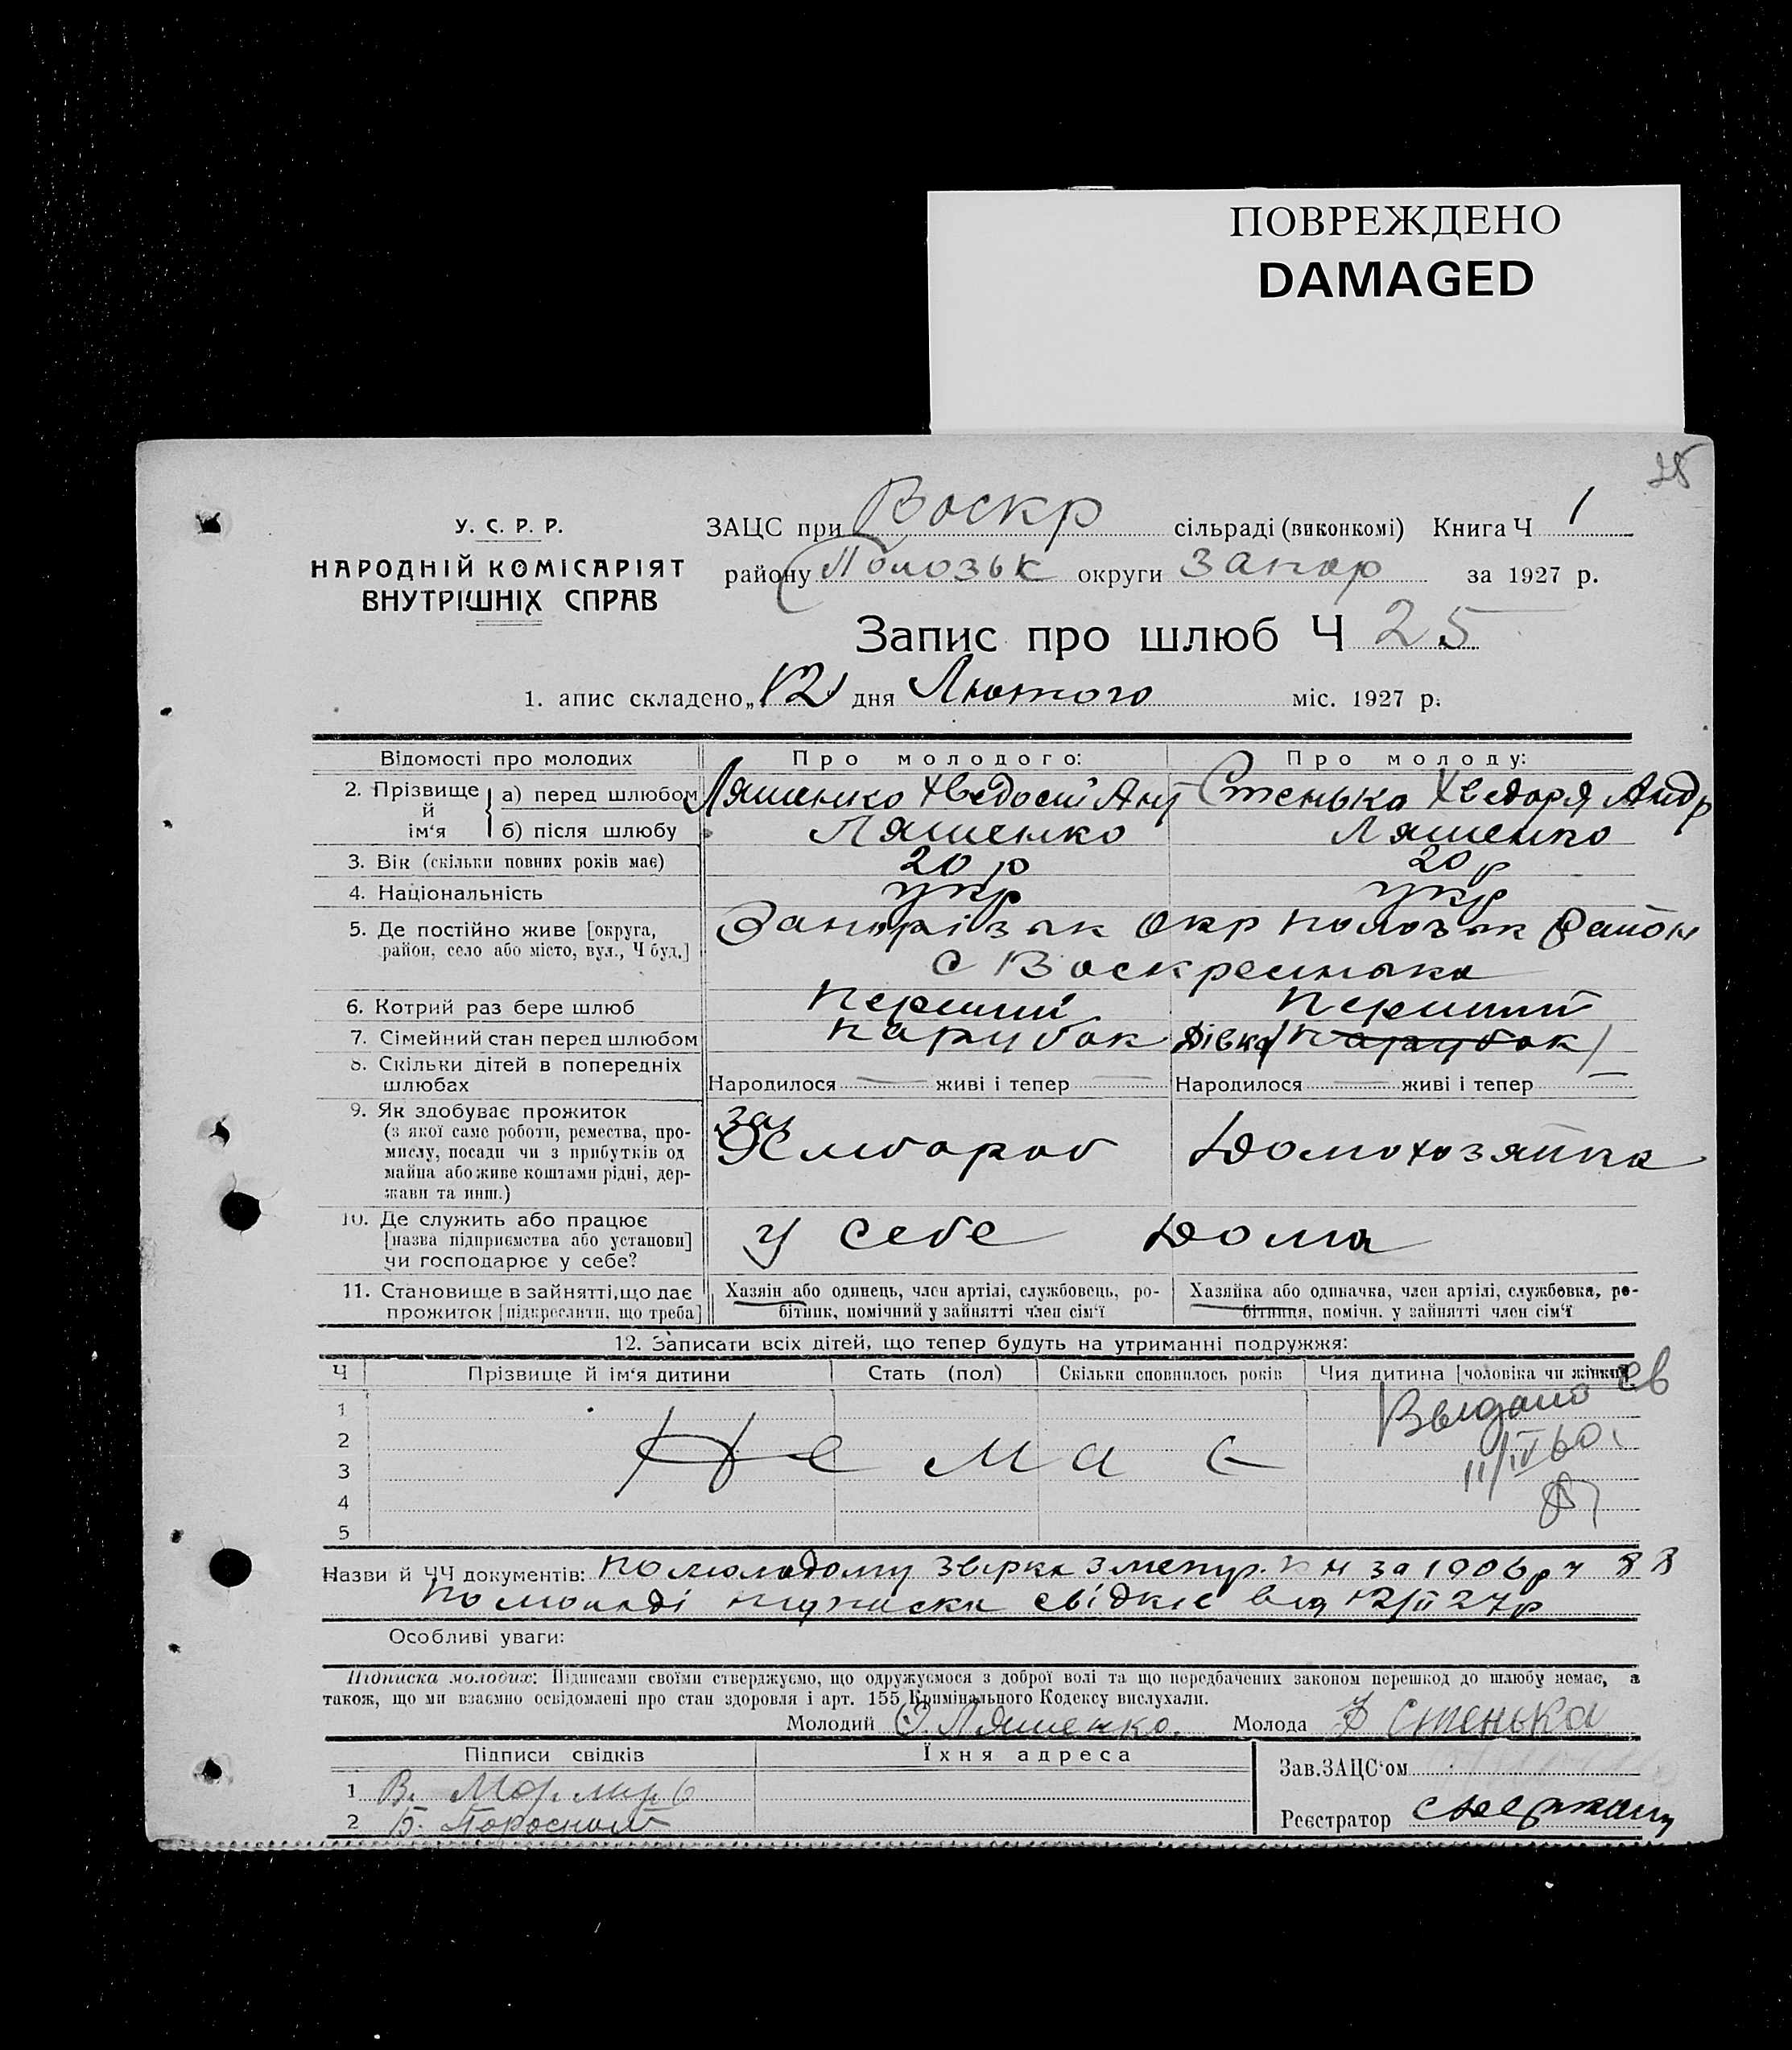 ПОВРЕЖДЕНО
DAMAGED
25
У. С. Р. Р.
НАРОДНІЙ КОМІСАРІЯТ
ВНУТРІШНІХ СПРАВ
ЗАЦС при Воскр сільраді (виконкомі) Книга Ч 1
району Полозьк округи Запор за 1927 р.
Запис про шлюб Ч 25
1. апис складено „12" дня Лютого міс. 1927 р.
Відомості про молодих Про молодого: Про молоду:
2. Прізвище й ім‘я
а) перед шлюбом Ляшенко Хведосій Ант Стенька Хведоря Андр
б) після шлюбу Ляшенко Ляшенко
3. Вік (скільки повних років має) 20 р 20 р
4. Національність укр укр
5. Де постійно живе [округа, Запорізьк Окр Полозьк Район
район, село або місто, вул., Ч буд.] с Воскресенька
6. Котрий раз бере шлюб Перший Перший
7. Сімейний стан перед шлюбом парубок Дівка /парубок/
8. Скільки дітей в попередніх
шлюбах Народилося — живі і тепер — Народилося — живі і тепер —
9. Як здобуває прожиток
(з якої саме роботи, ремества, про-
мислу, посади чи з прибутків од
майна або живе коштами рідні, дер-
жави та инш.)
Хлібороб Домохозяйка
10. Де служить або працює
[назва підприємства або установи]
чи господарює у себе?
у себе Дома
11. Становище в зайнятті, що дає
прожиток [підкреслити, що треба]
Хазяїн або одинець, член артілі, службовець, ро-
бітник, помічний у зайнятті член сім‘ї
Хазяйка або одиначка, член артілі, службовка, ро-
бітниця, помічн. у зайнятті член сім‘ї
12. Записати всіх дітей, що тепер будуть на утриманні подружжя:
Ч Прізвище й ім‘я дитини Стать (пол) Скільки сповнилось років Чия дитина [чоловіка чи жінки]
1
2
3
4
5
Немає
Выдано св
11/IV 60
Назви й ЧЧ документів: по молодому звірка з метр. к н за 1906 р ч 88
по молоді підписки свідків від 12/II 27р
Особливі уваги:
Підписка молодих: Підписами своїми стверджуємо, що одружуємося з доброї волі та що передбачених законом перешкод до шлюбу немає, а
також, що ми взаємно освідомлені про стан здоровля і арт. 155 Кримінального Кодексу вислухали.
Молодий Ляшенко. Молода Х Стенька
Підписи свідків Їхня адреса
1 В.
2 Б.
Зав. ЗАЦС‘ом
Реєстратор